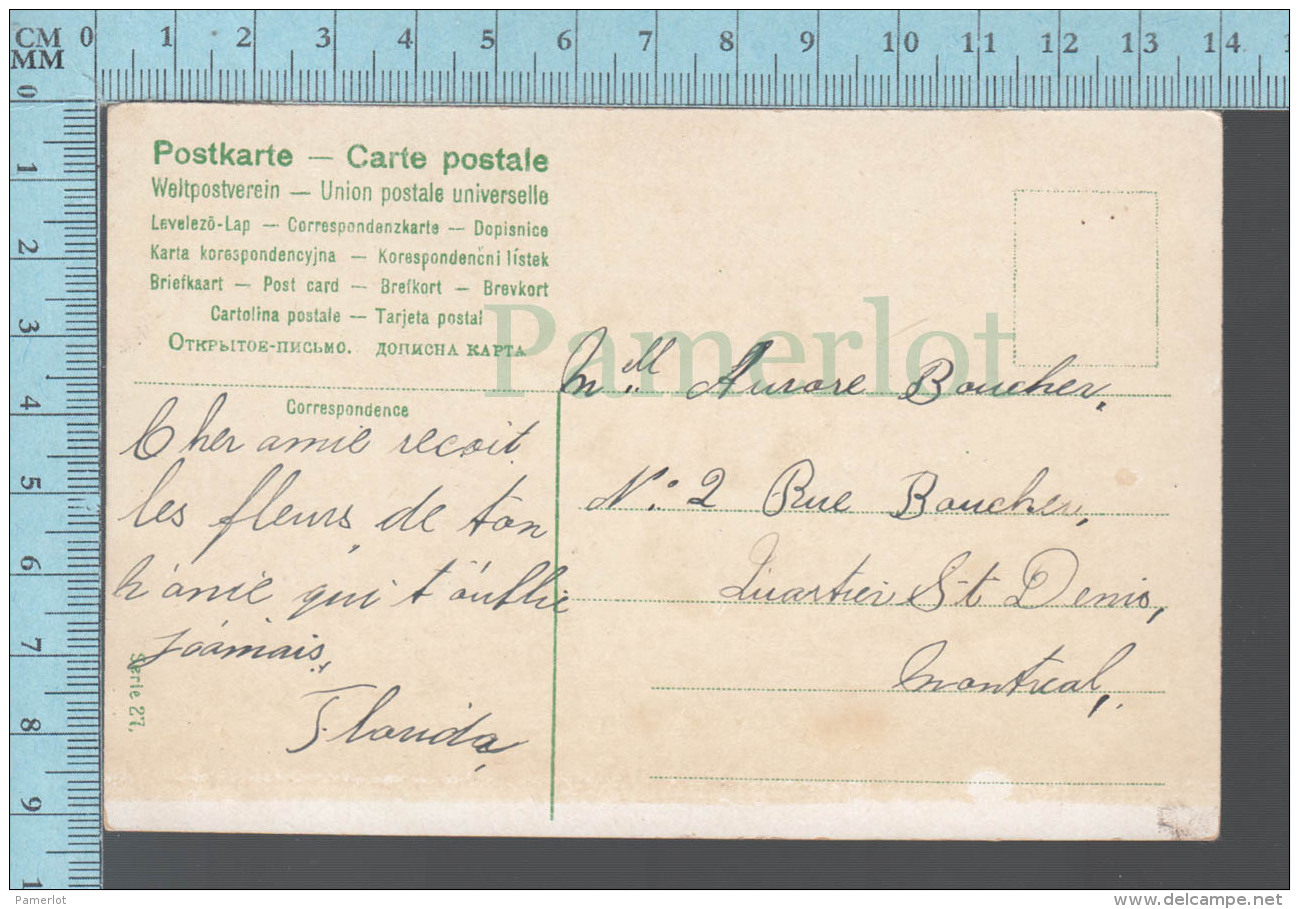 CM 0 1 2 3 4 5 6 7 8 9 10 11 12 13 14
MM
0 1 2 3 4 5 6 7 8 9
Postkarte — Carte postale
Weltpostverein — Union postale universelle
Levelezõ-Lap — Correspondenzkarte — Dopisnice
Karta korespondencyjna — Korespondenčni lístek
Briefkaart — Post card — Brefkort — Brevkort
Cartolina postale — Tarjeta postal
Открытое-письмо. дописна карта
Correspondence
Cher amie recoit
les fleurs, de ton
h'amie qui t'oublie
jamais,
Florida,
Mell Aurore Boucher,
N: 2 Rue Boucher,
Quartier St Denis,
Montreal,
Serie 27.
Pamerlot
Pamerlot
www.delcampe.net